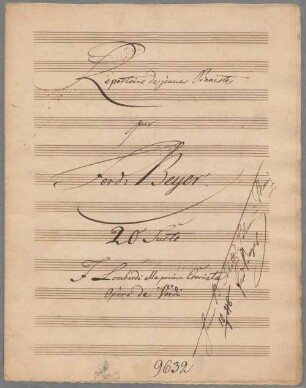 Répertoire des jeunes Pianistes
par
Ferd. Beyer.
20 Suite
I Lombardi alla prima Crociata
Opéra de Verdi
9632